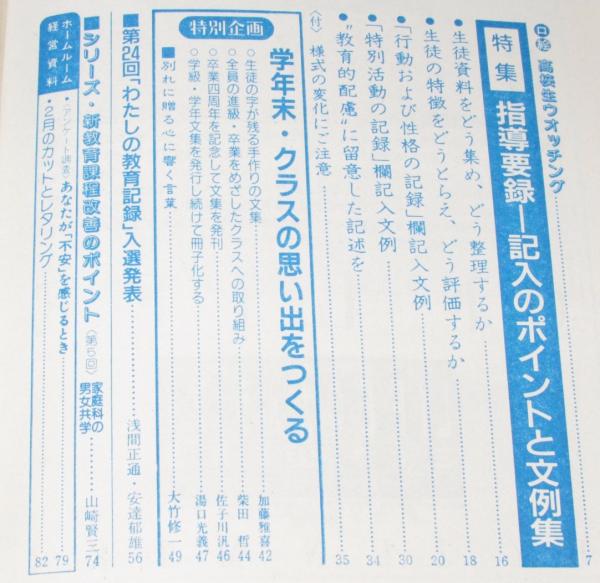 口絵 高校生ウオッチング……7
特集 指導要録―記入のポイントと文例集
●生徒資料をどう集め、どう整理するか……16
●生徒の特徴をどうとらえ、どう評価するか……18
●「行動および性格の記録」欄記入文例……20
●「特別活動の記録」欄記入文例……30
●"教育的配慮"に留意した記述を……34
〈付〉様式の変化にご注意……35
特別企画 学年末・クラスの思い出をつくる
○生徒の字が残る手作りの文集……加藤雅喜 42
○全員の進級・卒業をめざしたクラスへの取り組み……柴田哲 44
○卒業四周年を記念して文集を発刊……佐子川汎 46
○学級・学年文集を発行し続けて冊子化する……湯口光義 47
■別れに贈る心に響く言葉……大竹修一 49
■第24回「わたしの教育記録」入選発表……浅間正通・安達郁雄 56
■シリーズ・新教育課程改善のポイント〈第5回〉 家庭科の男女共学……山崎賢三 74
ホームルーム経営資料
・〈アンケート調査〉あなたが「不安」を感じるとき……79
・2月のカットとレタリング……82